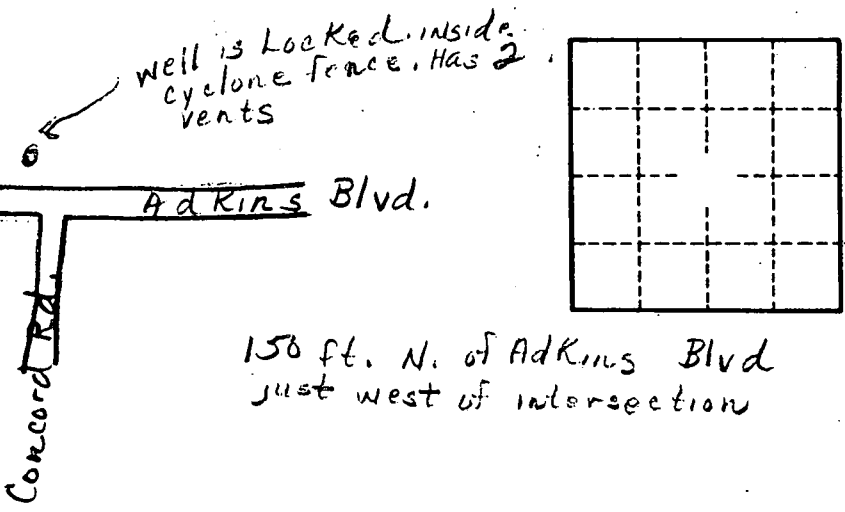 well is Locked inside
cyclone fence. Has 2
vents
Adkins Blvd.
Concord Rd.
150 ft. N. of Adkins Blvd
just west of intersection